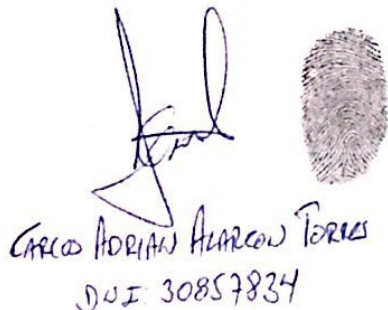 CARLOS ADRIAN ALARCON TORRES
DNI 30857834